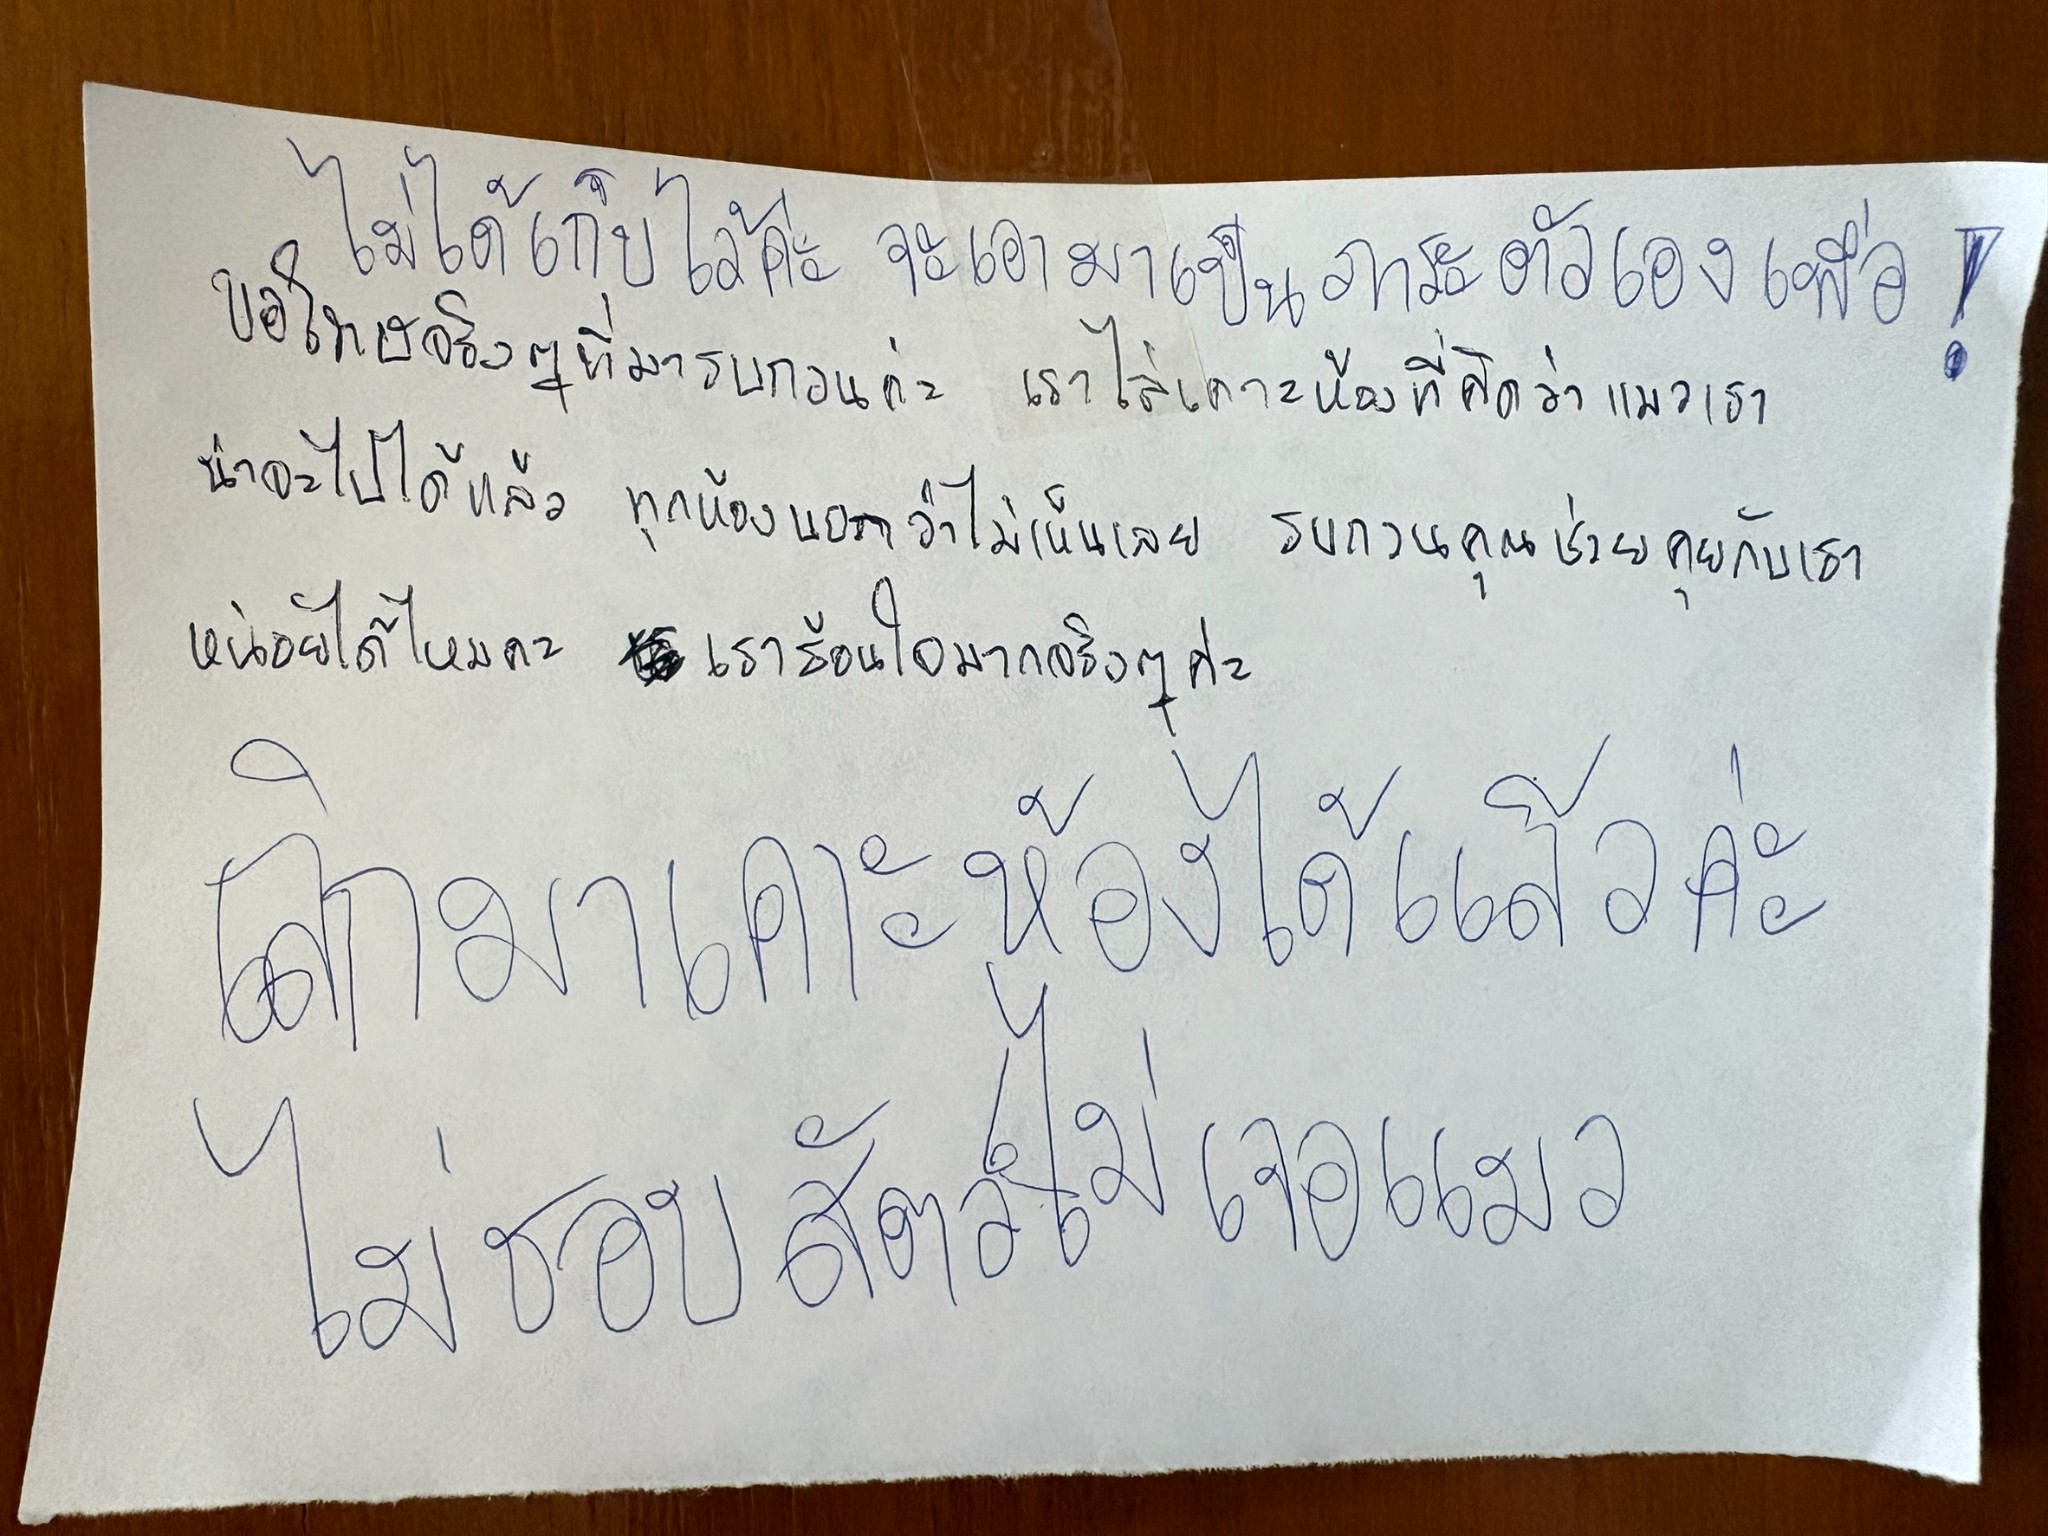 ไม่ได้เก็บไว้ค่ะ จะเอามาเป็นภาระตัวเองเพื่อ!
ขอโทษจริงๆที่มารบกวนค่ะ เราไล่เคาะห้องที่คิดว่าแมวเรา
น่าจะไปได้แล้ว ทุกห้องบอกว่าไม่เห็นเลย รบกวนคุณช่วยคุยกับเรา
หน่อยได้ไหมคะ เราร้อนใจมากจริงๆค่ะ
เลิกมาเคาะห้องได้แล้วค่ะ
ไม่ชอบสัตว์ไม่เจอแมว